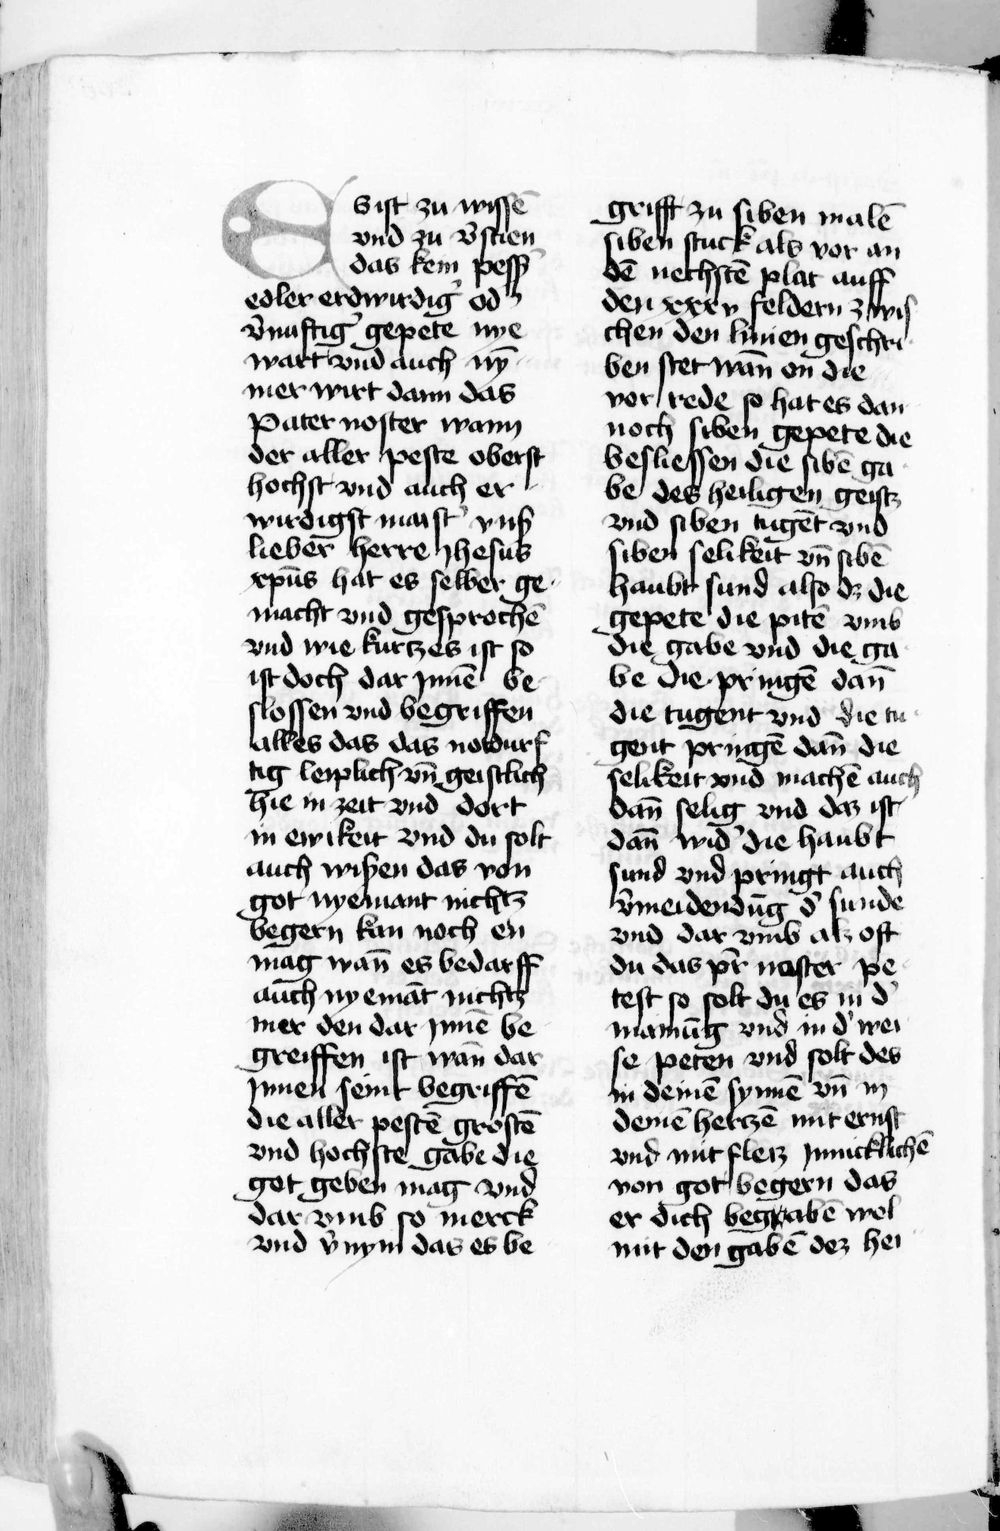 Es ist zu wissē
vnd zu v̓sten
das kein pesß̓
edler erdwirdig̓ od̓
v̓nuftig̓ gepete nye
wart vnd auch ny̅
mer wirt dann das
Pater noster wann
der aller peste oberst
hochst vnd auch er
wirdigst maist̓ vnß
lieber herre Jhesus
xp̄us hat es selber ge
macht vnd gesprochē
vnd wie kurtz es ist so
ist doch dar Jnnē be
slossen vnd begriffen
alles das das notdurf
tig leiplich vn̄ geistlich
hie in zeit vnd dort
in ewikeit vnd du solt
auch wißen das von
got nyemant nichtz
begern kan noch en
mag wan̄ es bedarff
auch nyemāt nichtz
mer den dar Jnnē be
greiffen ist wan̄ dar
Jnnen seint begriffē
die aller pestē grostē
vnd hochste gabe die
got geben mag vnd
dar vmb so merck
vnd v̓nym das es be
grifft zu siben malē
siben stuck als vor an
dē nechstē plat auff
den xxxv feldern zwis
chen den linien geschri
ben stet wan̄ on die
vor rede so hat es dan
noch siben gepete die
besliessen die sibē ga
be des heiligen geistz
vnd siben tugēt vnd
siben selikeit vn̄ sibē
haubt sund also dz die
gepete die pitē vmb
die gabe vnd die ga
be die pringē dan̄
die tugent vnd die tu
gent pringē dan̄ die
selikeit vnd machē auch
dan̄ selig vnd daz ist
dan̄ wid̓ die haubt
sund vnd pringt auch
v̓meidendūg d̓ sunde
vnd dar vmb alz oft
du das pr̄ noster pe
test so solt du es in d̓
mainūg vnd in d̓ wei
se peten vnd solt des
in deinē synnē vn̄ in
deinē hertzē mit ernst
vnd mit fleiz Jnnicklichē
von got begern das
er dich begabē wel
mit den gabē dez hei